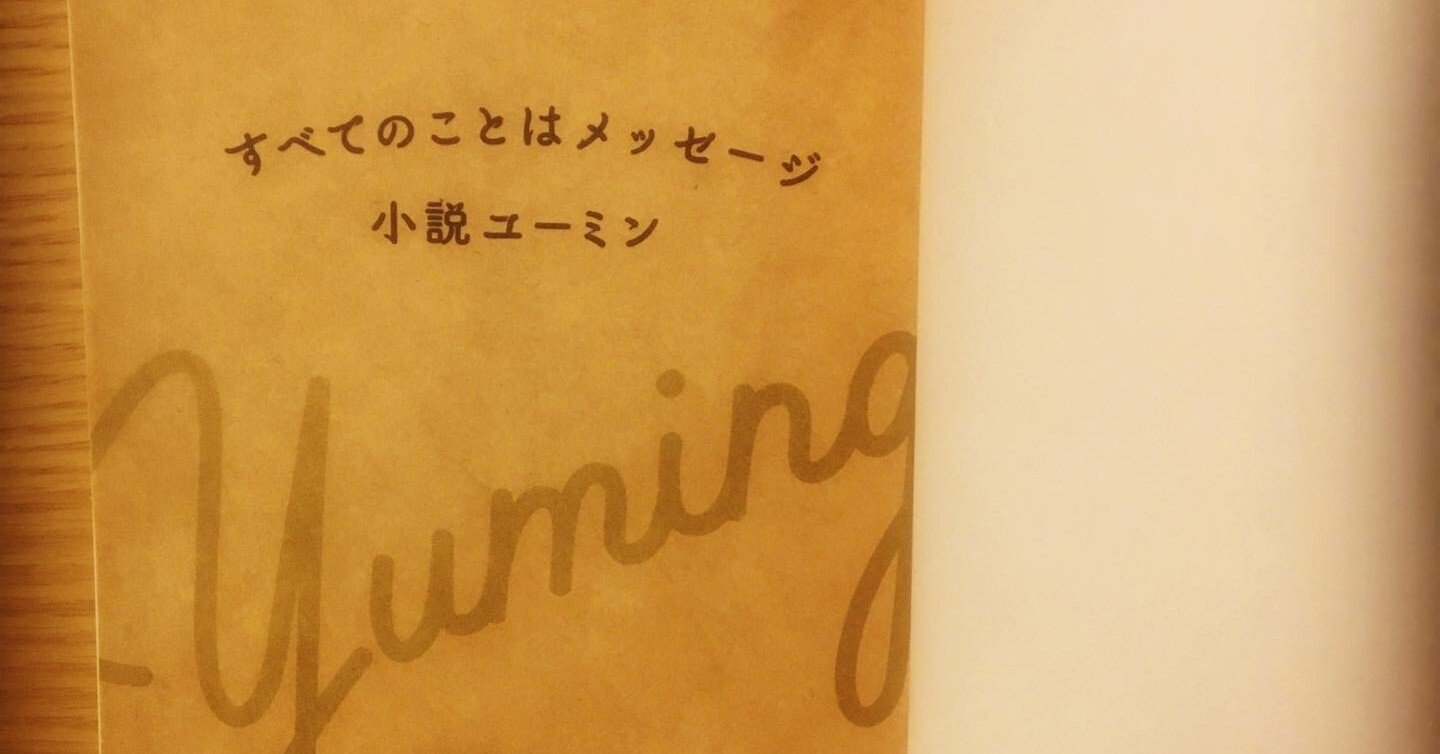 すべてのことはメッセージ
小説ユーミン
Yuming